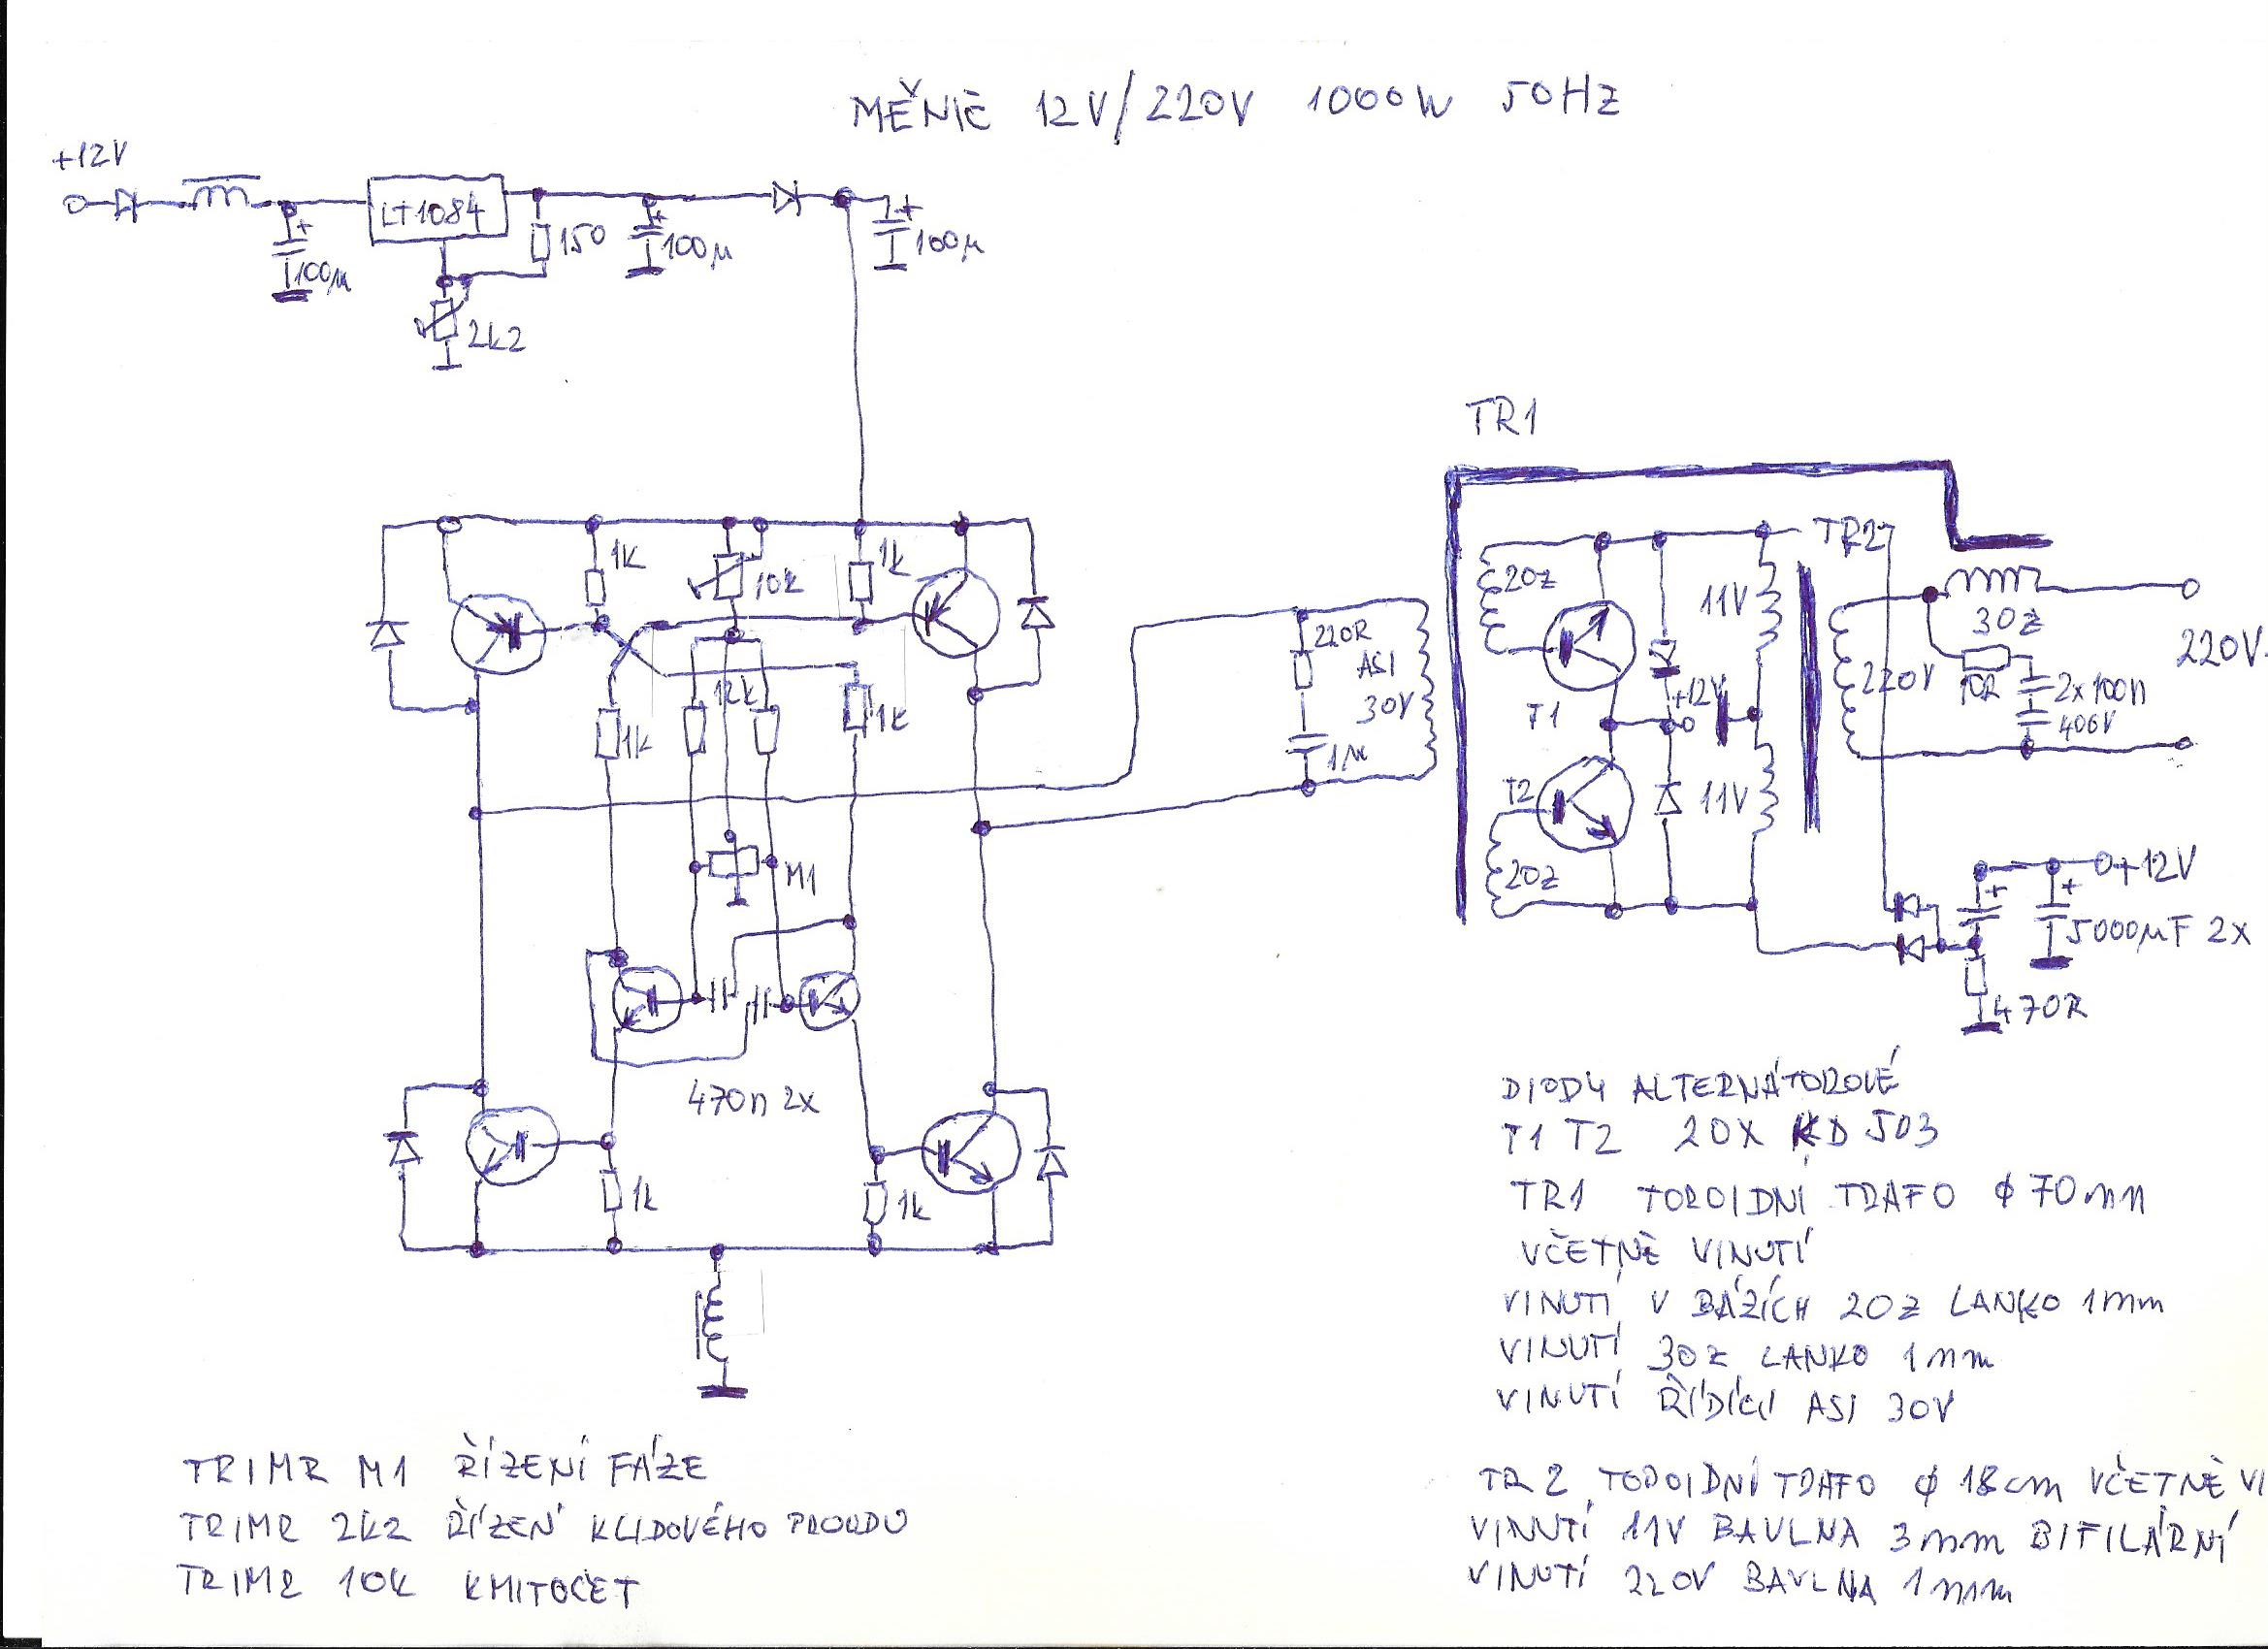 MĚNIČ 12V/220V 1000W 50HZ
+12V
LT1084
150
100µ
100µ
100µ
2k2
TR1
1k
10k
1k
20z
11V
TR2
30z
220V
220R
ASI
30V
1M
1k
12k
1k
T1
+12V
220V
10R
2x100n
400V
T2
11V
M1
20z
+12V
5000µF 2x
470R
470n 2x
1k
1k
DIODY ALTERNÁTOROVÉ
T1 T2 20X KD 503
TR1 TOROIDNÍ TRAFO ϕ 70mm
VČETNĚ VINUTÍ
VINUTÍ V BÁZÍCH 20Z LANKO 1mm
VINUTÍ 30Z LANKO 1mm
VINUTÍ ŘÍDÍCÍ ASI 30V
TRIMR M1 ŘÍZENÍ FÁZE
TR2 TOROIDNÍ TRAFO ϕ 18cm VČETNĚ VI
TRIMR 2k2 ŘÍZENÍ KLIDOVÉHO PROUDU
VINUTÍ 11V BAVLNA 3mm BIFILÁRNÍ
TRIMR 10k KMITOČET
VINUTÍ 220V BAVLNA 1mm